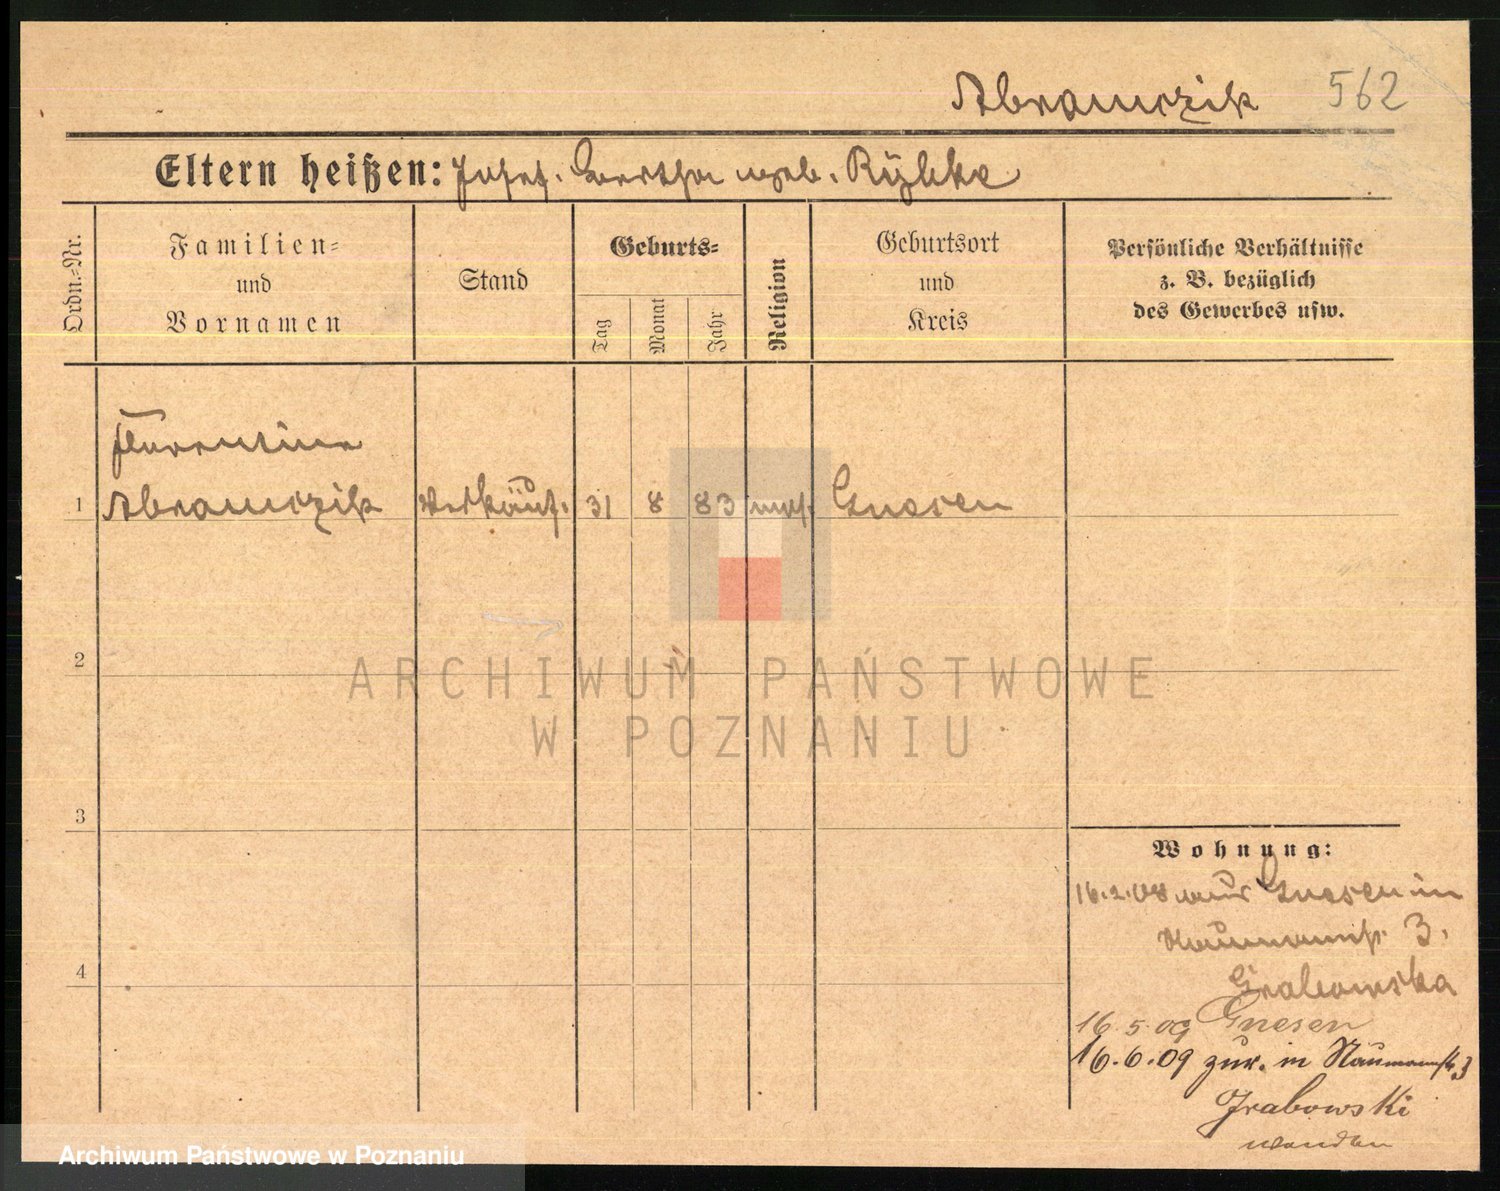 Abramczik 562
Eltern heißen: Josef. Bertha geb. Rybka
Ordn.-Nr.
Familien-
und
Vornamen
Stand
Geburts-
Tag
Monat
Jahr
Religion
Geburtsort
und
Kreis
Persönliche Verhältnisse
z. B. bezüglich
des Gewerbes usw.
Florentine
1 Abramczik Verkäuf. 31 8 83 Gnesen
2
3
4
Wohnung:
16.2.08 aus Gnesen in
Naumannst. 3.
Grabowska
16.5.09 Gnesen
16.6.09 zur. in Naumannstr. 3
Grabowski
ARCHIWUM PAŃSTWOWE
W POZNANIU
Archiwum Państwowe w Poznaniu